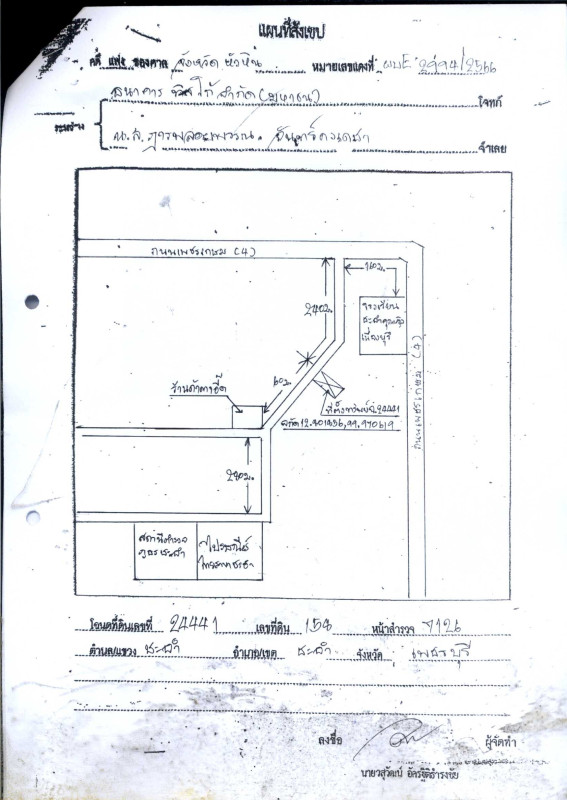 แผนที่สังเขป
คดี แพ่ง ของศาล จังหวัด หัวหิน หมายเลขแดงที่ ผบE 2994/2566
ธนาคาร จำกัด (มหาชน) โจทก์
ระหว่าง
น.ส. จำเลย
ถนนเพชรเกษม (4)
160ม.
240ม.
โรงเรียน
ชะอำคุณหญิง
เนื่องบุรี
60ม.
ร้านค้า
ที่ตั้งทรัพย์ ฉ.24441
พิกัด 12.801436,99.970619
ถนนเพชรเกษม (4)
280ม.
สถานีตำรวจ
ภูธรชะอำ
ไปรษณีย์
โฉนดที่ดินเลขที่ 24441 เลขที่ดิน 154 หน้าสำรวจ 7126
ตำบล/แขวง ชะอำ อำเภอ/เขต ชะอำ จังหวัด เพชรบุรี
ลงชื่อ ผู้จัดทำ
นายวสุวัฒน์ อัครฐิติธำรงชัย